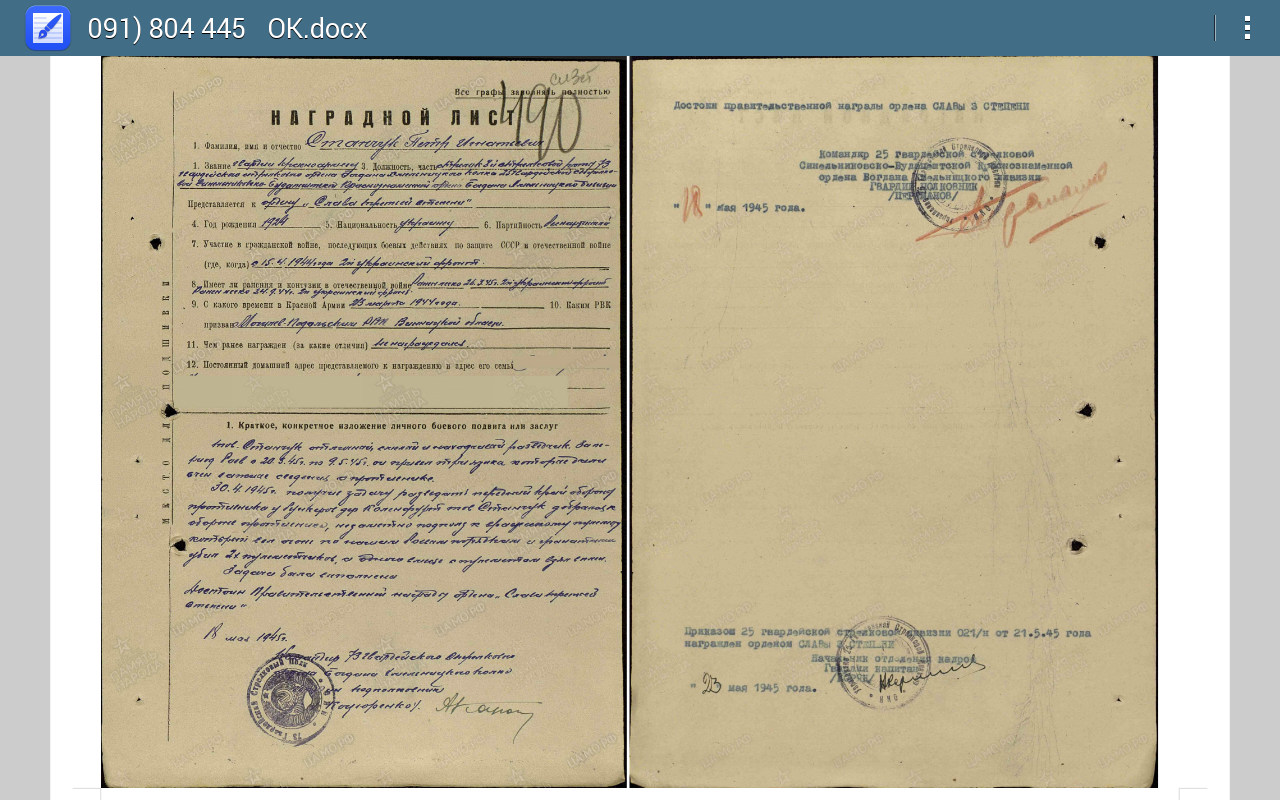 091) 804 445 OK.docx
490
Все графы заполнять полностью
НАГРАДНОЙ ЛИСТ
1. Фамилия, имя и отчество Станчук Петр Игнатович
1. Звание гвардии красноармеец 3. Должность, часть стрелок 2й стрелковой роты 73
гвардейского стрелкового ордена Богдана Хмельницкого полка 25 гвардейской стрелко-
вой Синельниково-Будапештской Краснознаменной ордена Богдана Хмельницкого дивизии
Представляется к ордену „Слава третьей степени"
4. Год рождения 1924 5. Национальность украинец 6. Партийность
7. Участие в гражданской войне, последующих боевых действиях по защите СССР и отечественной войне
(где, когда) с 15.4.1944 года 2й Украинский фронт.
8. Имеет ли ранения и контузии в отечественной войне Ранен легко 26.3.45г. 2й Украинский фронт
Ранен легко 2й Украинский фронт
9. С какого времени в Красной Армии 23 марта 1944 года. 10. Каким РВК
призван Могилев-Подольским РВК Винницкой области.
11. Чем ранее награжден (за какие отличия) Не награждался.
12. Постоянный домашний адрес представляемого к награждению и адрес его семьи
МЕСТО ДЛЯ ПОДШИВКИ
1. Краткое, конкретное изложение личного боевого подвига или заслуг
Тов. Станчук отличный, смелый и находчивый разведчик. За пе-
риод боев с по 9.5.45г. он привел три языка которые дали
очень важные сведения о противнике.
30.4.1945г. получив задачу разведать передний край обороны
противника у бункеров дер. тов Станчук добрался к
обороне противника, незаметно подполз к вражескому пункту
который вел огонь по нашим боевым порядкам и гранатами
убил 2х пулеметчиков, а одного немца с пулеметом взял в плен.
Задача была выполнена
Достоин Правительственной награды ордена „Слава третьей
степени"
18 мая 1945г.
Командир 73 гвардейского стрелкового
ордена Богдана Хмельницкого полка
гвардии подполковник
73 Гвардейский Стрелковый Полк
Достоин правительственной награды ордена СЛАВЫ 3 СТЕПЕНИ
Командир 25 гвардейской стрелковой
Синельниковско-Будапештской Краснознаменной
ордена Богдана Хмельницкого дивизии
ГВАРДИИ ПОЛКОВНИК
"18" мая 1945 года.
Приказом 25 гвардейской стрелковой дивизии 021/н от 21.5.45 года
награжден орденом СЛАВЫ 3 СТЕПЕНИ
Начальник отделения кадров
Гвардии капитан
"23 мая 1945 года.